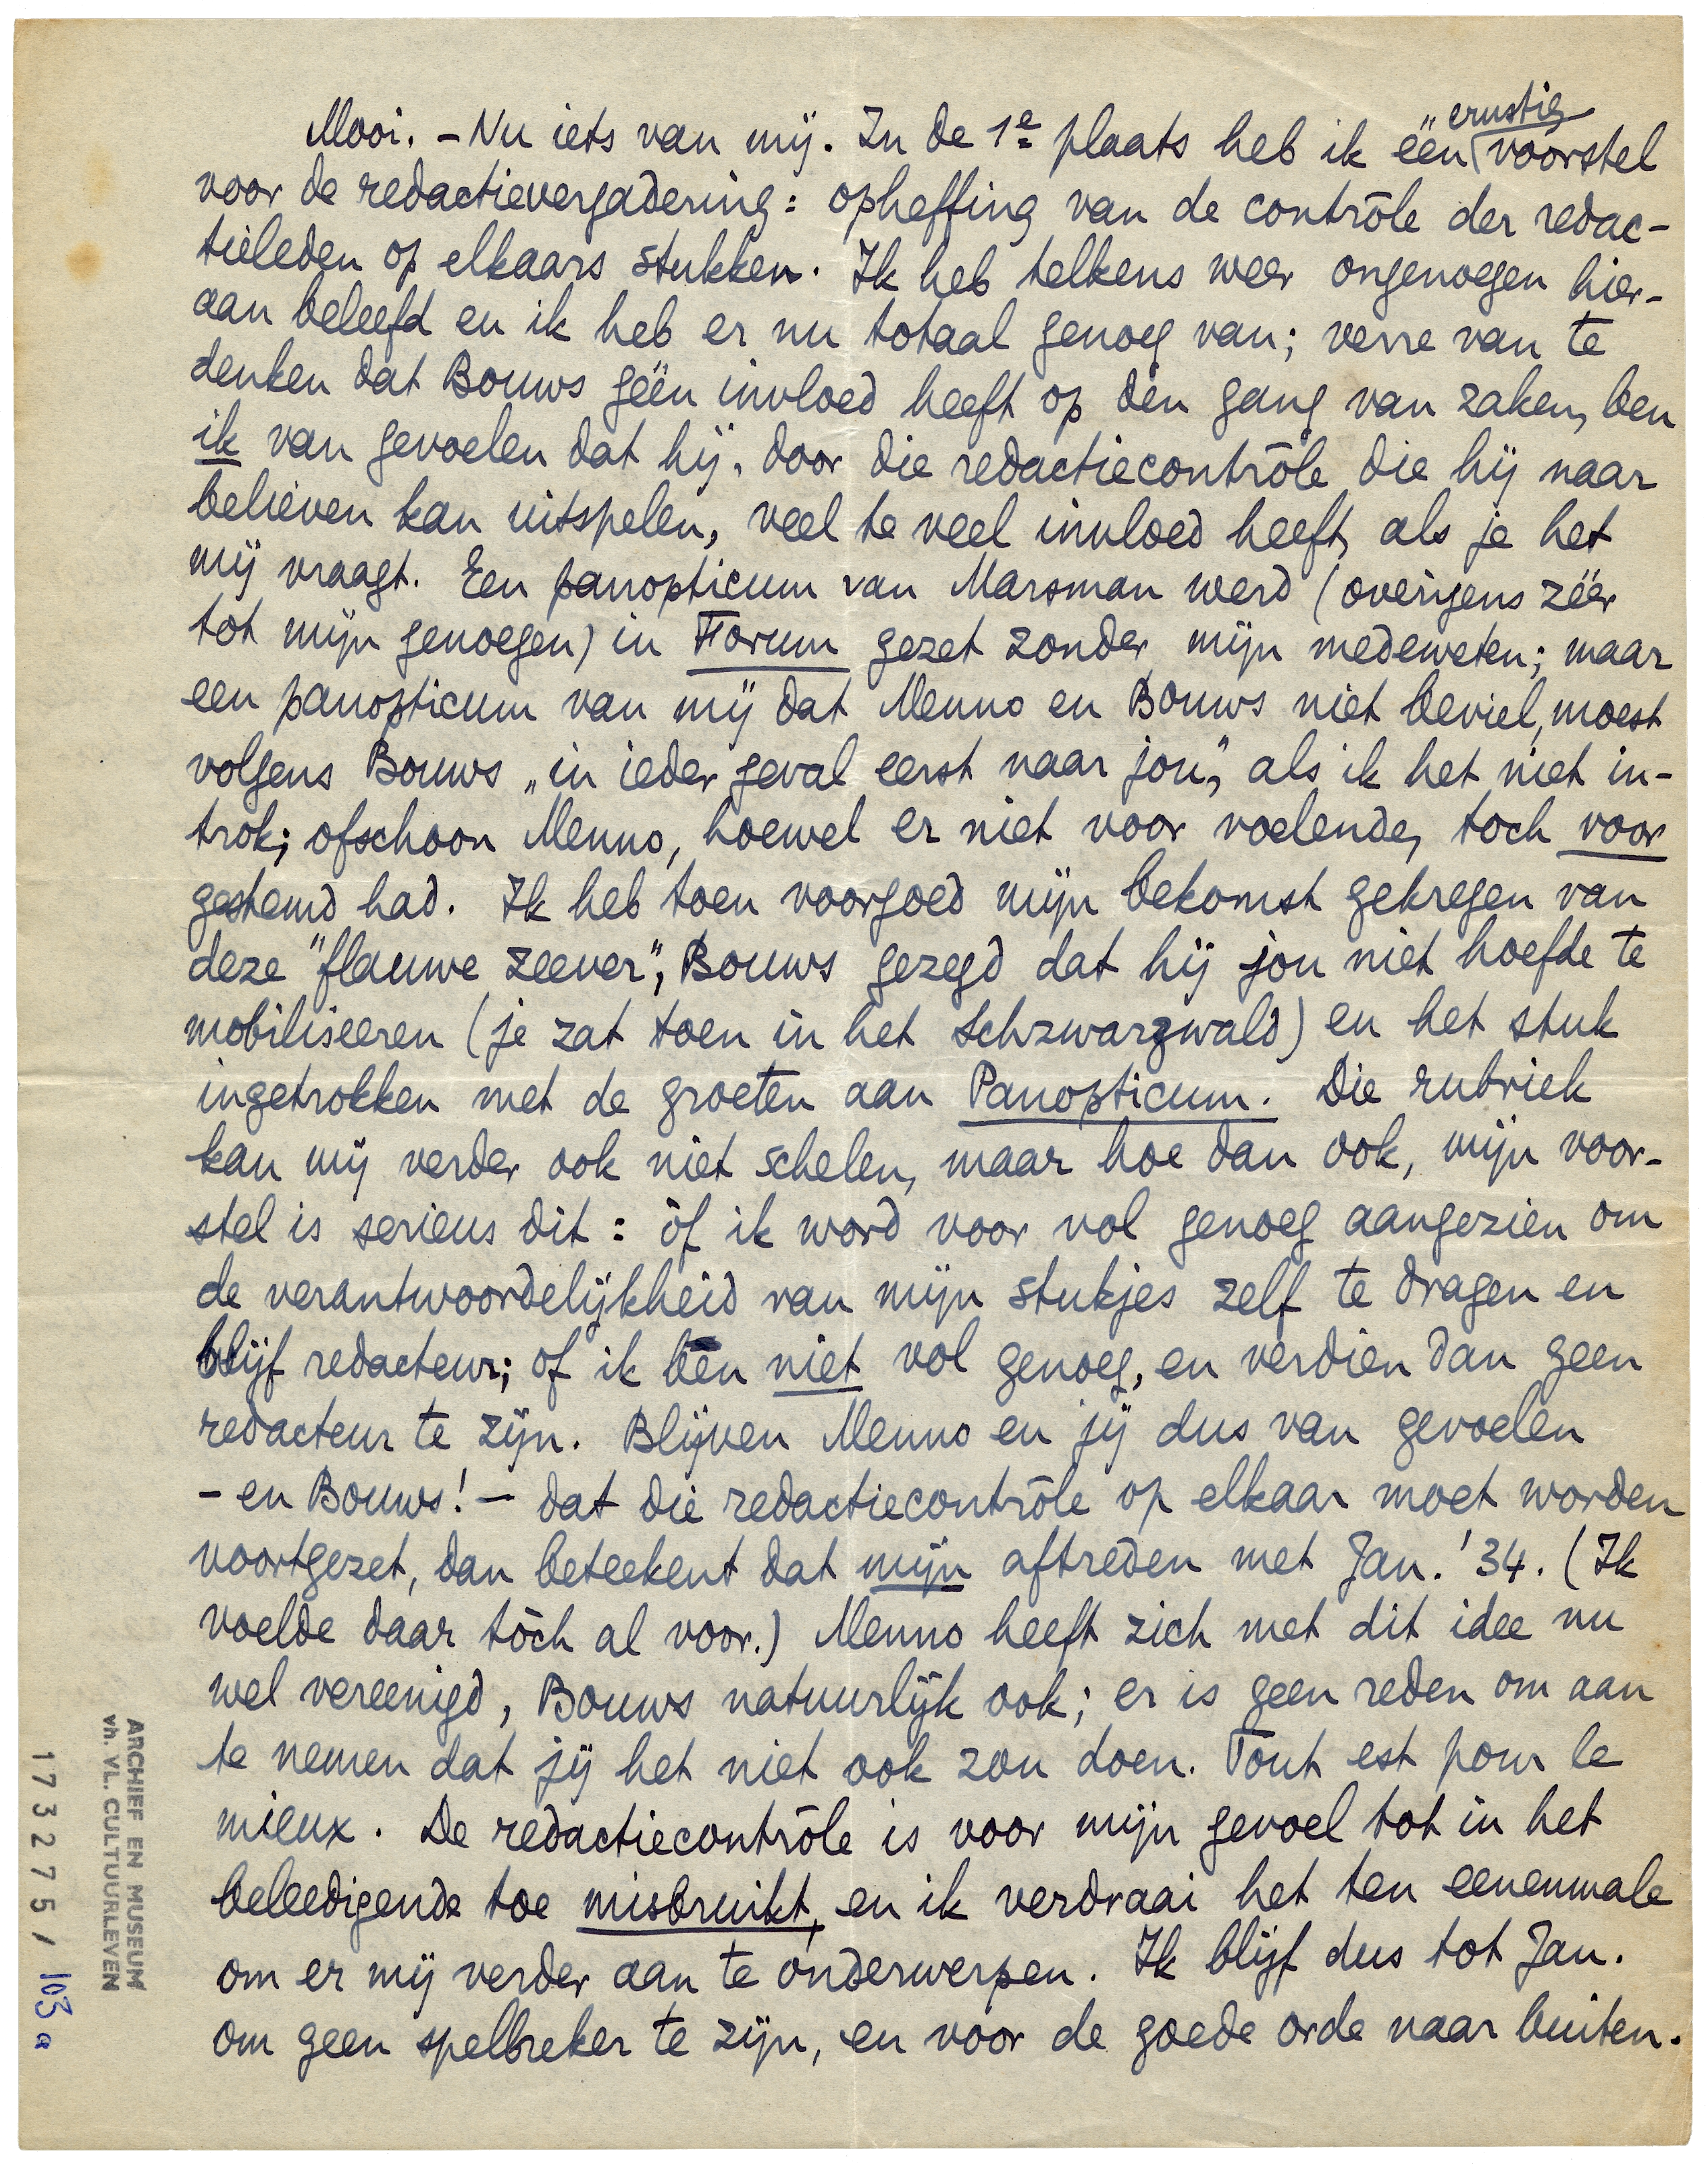 Mooi. – Nu iets van mij. In de 1e plaats heb ik één ernstig voorstel
voor de redactievergadering: opheffing van de contrôle der redac-
tieleden op elkaars stukken. Ik heb telkens weer ongenoegen hier-
aan beleefd en ik heb er nu totaal genoeg van; verre van te
denken dat Bouws géén invloed heeft op den gang van zaken, ben
ik van gevoelen dat hij, door die redactiecontrôle die hij naar
believen kan uitspelen, veel te veel invloed heeft, als je het
mij vraagt. Een panopticum van Marsman werd (overigens zéér
tot mijn genoegen) in Forum gezet zonder mijn medeweten; maar
een panopticum van mij dat Menno en Bouws niet beviel, moest
volgens Bouws „in ieder geval eerst naar jou", als ik het niet in-
trok; ofschoon Menno, hoewel er niet voor voelende, toch voor
gestemd had. Ik heb toen voorgoed mijn bekomst gekregen van
deze "flauwe zeever", Bouws gezegd dat hij jou niet hoefde te
mobiliseeren (je zat toen in het Schzwarzwald) en het stuk
ingetrokken met de groeten aan Panopticum. Die rubriek
kan mij verder ook niet schelen, maar hoe dan ook, mijn voor-
stel is serieus dit: òf ik word voor vol genoeg aangezien om
de verantwoordelijkheid van mijn stukjes zelf te dragen en
blijf redacteur; of ik ben niet vol genoeg, en verdien dan geen
redacteur te zijn. Blijven Menno en jij dus van gevoelen
– en Bouws! – dat die redactiecontrôle op elkaar moet worden
voortgezet, dan beteekent dat mijn aftreden met Jan. '34. (Ik
voelde daar tòch al voor.) Menno heeft zich met dit idee nu
wel vereenigd, Bouws natuurlijk ook; er is geen reden om aan
te nemen dat jij het niet ook zou doen. Tout est pour le
mieux. De redactiecontrôle is voor mijn gevoel tot in het
beleedigende toe misbruikt, en ik verdraai het ten eenenmale
om er mij verder aan te onderwerpen. Ik blijf dus tot Jan.
om geen spelbreker te zijn, en voor de goede orde naar buiten.
ARCHIEF EN MUSEUM
vh. VL. CULTUURLEVEN
173275 / 103a